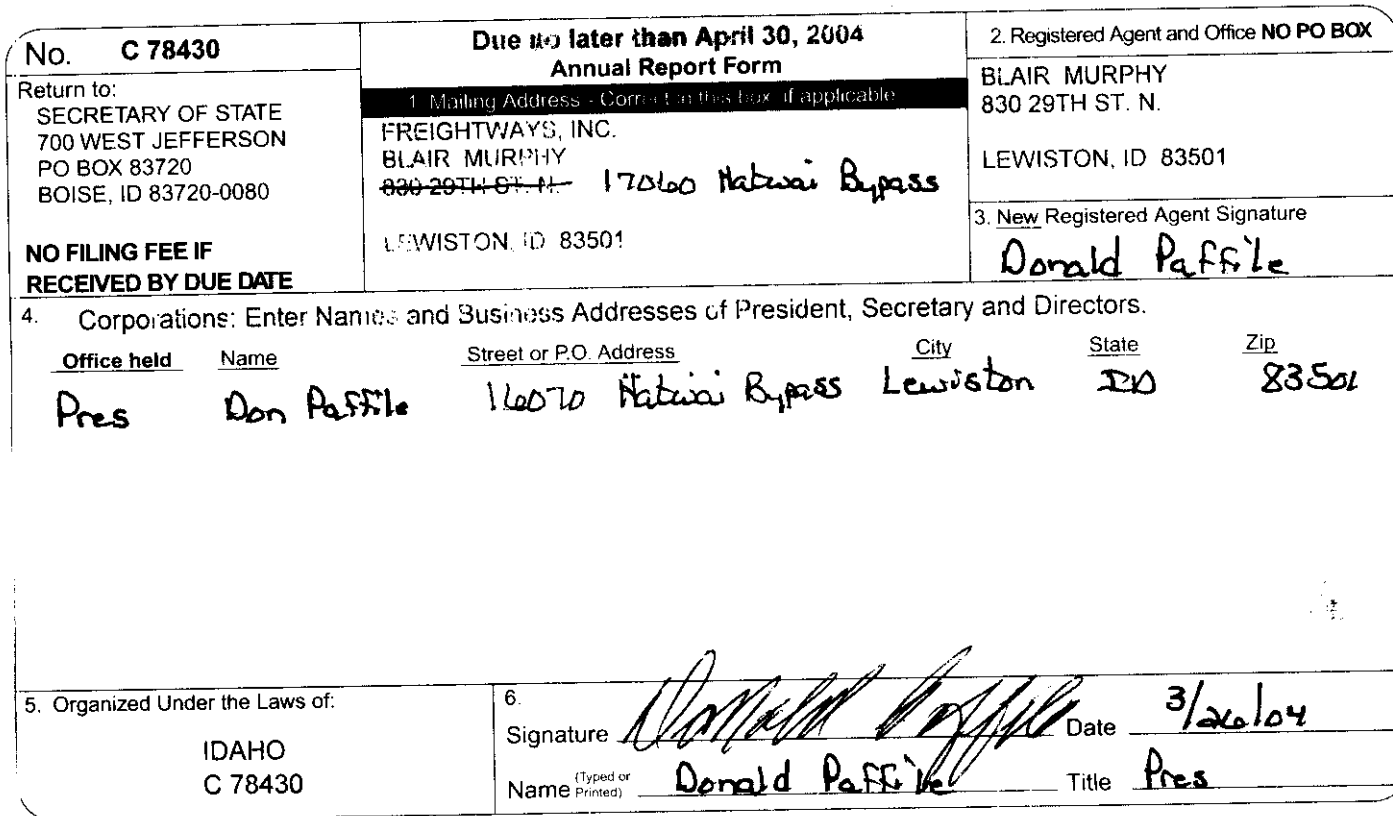 No. C 78430
Return to:
SECRETARY OF STATE
700 WEST JEFFERSON
PO BOX 83720
BOISE, ID 83720-0080
NO FILING FEE IF
RECEIVED BY DUE DATE
Due no later than April 30, 2004
Annual Report Form
1. Mailing Address - Correct in this box, if applicable
FREIGHTWAYS, INC.
BLAIR MURPHY
830 29TH ST. N. 17060 Hatwai Bypass
LEWISTON, ID 83501
2. Registered Agent and Office NO PO BOX
BLAIR MURPHY
830 29TH ST. N.
LEWISTON, ID 83501
3. New Registered Agent Signature
Donald Paffile
4. Corporations: Enter Names and Business Addresses of President, Secretary and Directors.
Office held Name Street or P.O. Address City State Zip
Pres Don Paffile 16070 Hatwai Bypass Lewiston ID 83501
5. Organized Under the Laws of:
IDAHO
C 78430
6.
Signature Donald Paffile Date 3/26/04
Name (Typed or Printed) Donald Paffile Title Pres